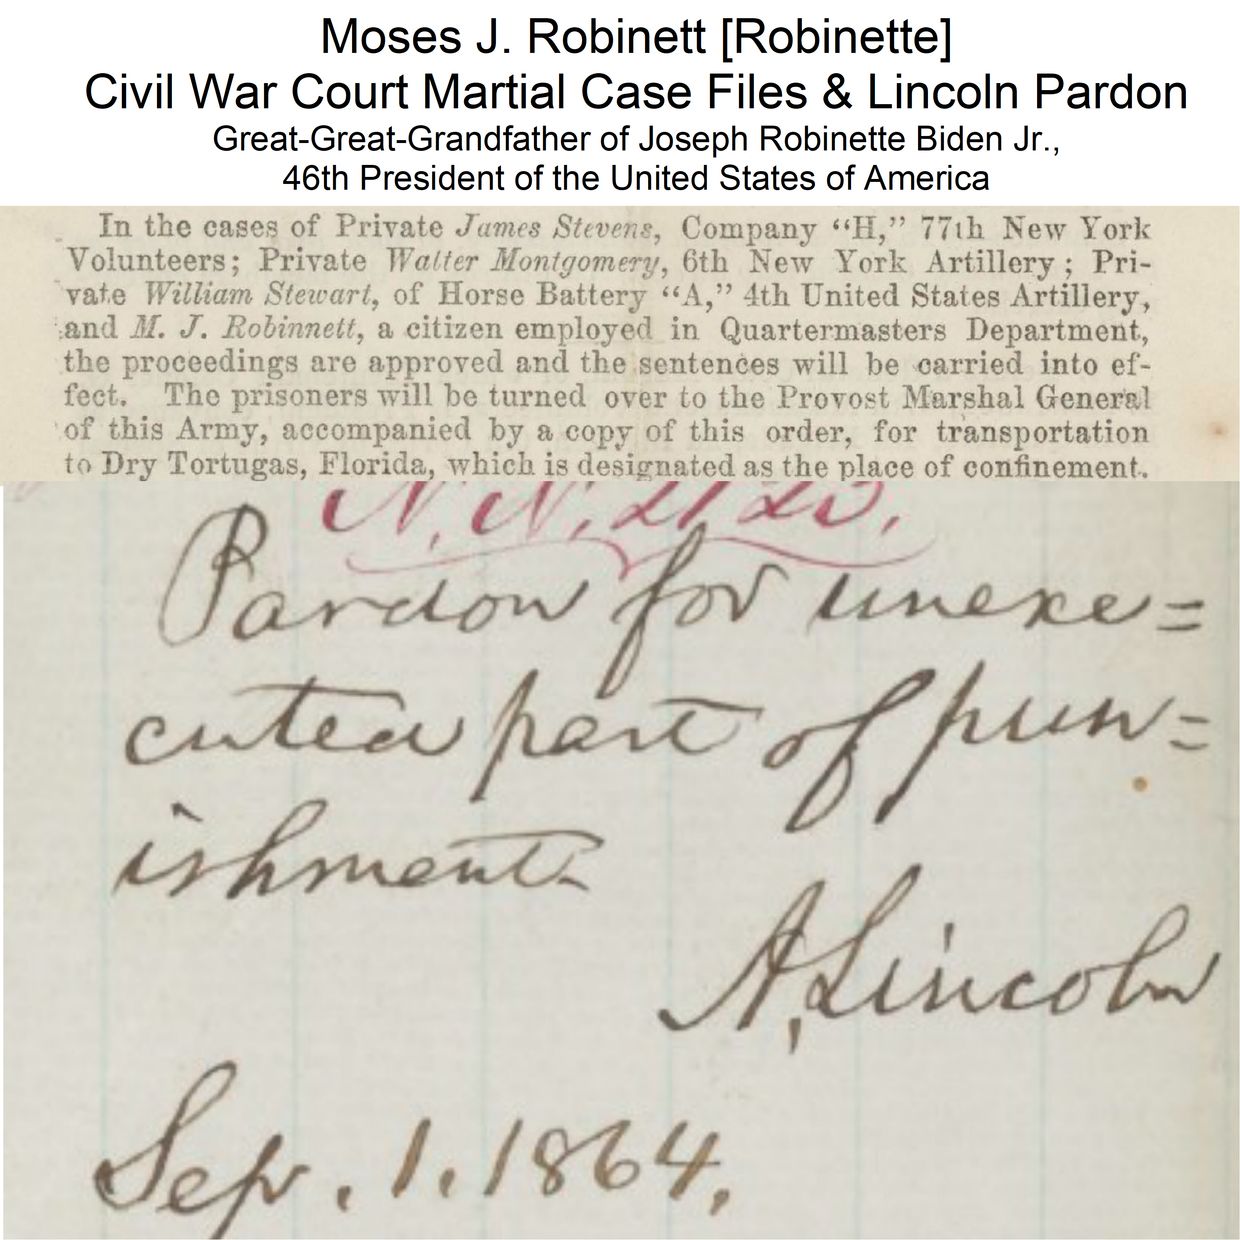 Moses J. Robinett [Robinette]
Civil War Court Martial Case Files & Lincoln Pardon
Great-Great-Grandfather of Joseph Robinette Biden Jr.,
46th President of the United States of America
In the cases of Private James Stevens, Company “H,” 77th New York
Volunteers; Private Walter Montgomery, 6th New York Artillery; Pri-
vate William Stewart, of Horse Battery “A,” 4th United States Artillery,
and M. J. Robinnett, a citizen employed in Quartermasters Department,
the proceedings are approved and the sentences will be carried into ef-
fect. The prisoners will be turned over to the Provost Marshal General
of this Army, accompanied by a copy of this order, for transportation
to Dry Tortugas, Florida, which is designated as the place of confinement.
N.N.
Pardon for unexe=
cuted part of pun=
ishment.
A. Lincoln
Sep. 1. 1864.